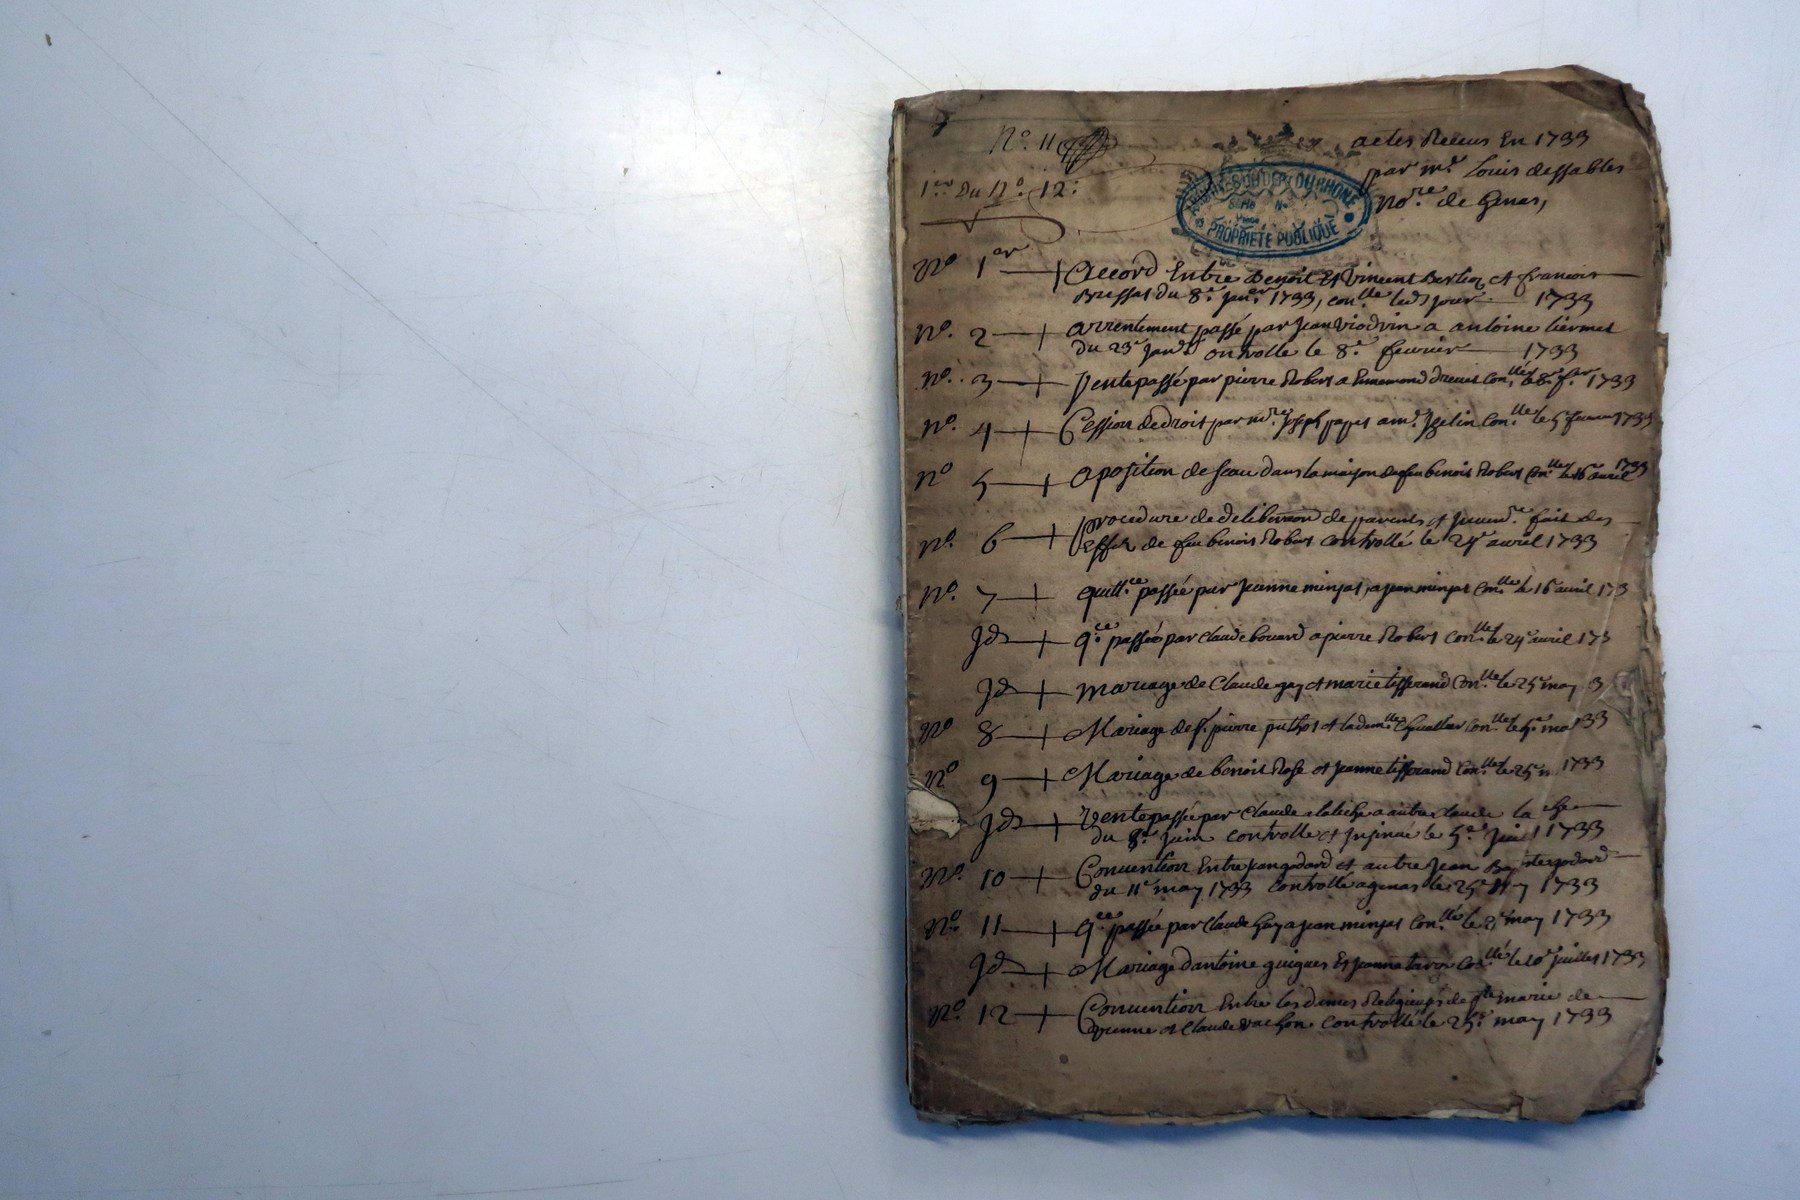 N.° 11
actes Receus En 1733
par m.e Louis dessables
No.re de Genas,
1.er Du N.° 12:
ARCHIVES DU DEPT DU RHONE
Série N°
PROPRIÉTÉ PUBLIQUE
N.° 1er Accord Entre Benoit Et Vincent et francois
du 8.e jan.er 1733, con.lle led jour 1733
N.° 2 arrentement passé par Jean a antoine
du 23e Janv. controlle le 8.e fevrier 1733
N.° 3 Vente passé par pierre Robert a con.lle le 8e f.er 1733
N.° 4 Cession de droit par m.re Joseph a m.e con.lle le 5 fevrier 1733
N.° 5 aposition de seau dans la maison de feu benoit Robert con.lle le 16e avril 1733
N.° 6 procedure de deliberaon de parents et fait des
Effets de feu benoit Robert controllé le 24e avril 1733
N.° 7 quitt.ce passée par Jeanne minjat, a jean minjat con.lle le 16 avril 173
Jd q.ce passée par Claude bouard a pierre Robert con.lle le 24e avril 173
Jd mariage de Claude gay et marie tisserand con.lle le 25e may 3
N.° 8 Mariage de s.r pierre et la dem.lle con.lle le 5.e ma 33
N.° 9 Mariage de benoit Rose et Jeanne tisserand con.lle le 25e m 1733
Jd Vente passée par Claude a autre claude la
du 8.e Juin controlle et Insinué le 5.e Jui 1733
N.° 10 Convention Entre jean godard et autre Jean godard
du 11e may 1733 controllé a genas le 25e may 1733
N.° 11 q.ce passée par Claude Gay a jean minjat con.llé le may 1733
Jd Mariage dantoine guigues Et Jeanne con.llé le 10e juillet 1733
N.° 12 Convention Entre les dames Religieuses de ste marie de
vienne et Claude vachon controllé le 25.e may 1733